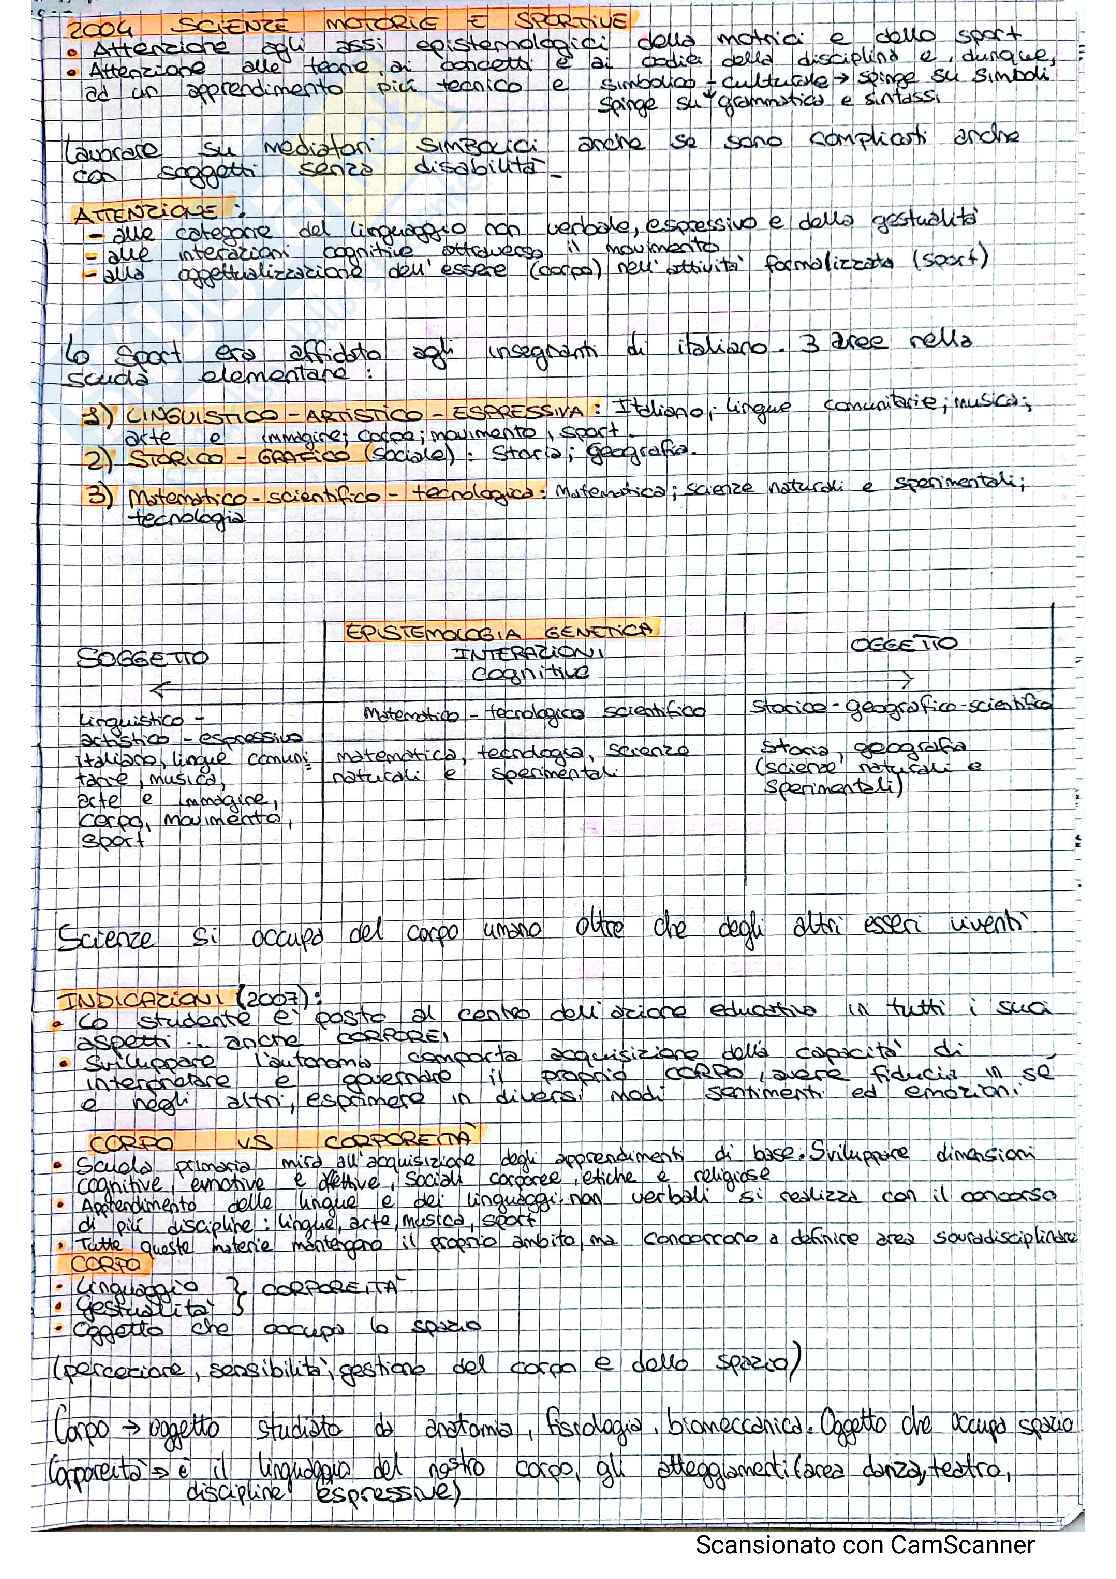 2004 SCIENZE MOTORIE E SPORTIVE
• Attenzione agli assi epistemologici della motrici e dello sport
• Attenzione alle teorie, ai concetti e ai codici della disciplina e, dunque,
ad un apprendimento più tecnico e simbolico - culturale → spinge su simboli
spinge su grammatica e sintassi
Lavorare su mediatori SIMBOLICI anche se sono complicati anche
con soggetti senza disabilità
ATTENZIONE:
- alle categorie del linguaggio non verbale, espressivo e della gestualità
- alle interazioni cognitive attraverso il movimento
- alla oggettualizzazione dell'essere (corpo) nell'attività formalizzata (sport)
Lo Sport era affidato agli insegnanti di italiano. 3 aree nella
scuola elementare:
1) LINGUISTICO - ARTISTICO - ESPRESSIVA: Italiano; lingue comunitarie; musica;
arte e immagine; corpo; movimento, sport.
2) STORICO - GRAFICO (sociale): Storia; geografia.
3) Matematico - scientifico - tecnologica: Matematica; scienze naturali e sperimentali;
tecnologia
EPISTEMOLOGIA GENETICA
SOGGETTO INTERAZIONI OGGETTO
cognitive
← →
Linguistico - Matematico - tecnologico scientifico Storico - geografico - scientifico
artistico - espressivo
italiano, lingue comuni matematica, tecnologia, scienze Storia, geografia
tarie, musica, naturali e sperimentali (scienze naturali e
arte e immagine, sperimentali)
corpo, movimento,
sport
Scienze si occupa del corpo umano oltre che degli altri esseri viventi
INDICAZIONI (2007):
• Lo studente è posto al centro dell'azione educativa in tutti i suoi
aspetti .. anche CORPOREI
• Sviluppare l'autonomia comporta acquisizione della capacità di
interpretare e governare il proprio CORPO, avere fiducia in sé
e negli altri, esprimere in diversi modi sentimenti ed emozioni
CORPO VS CORPOREITÀ
• Scuola primaria mira all'acquisizione degli apprendimenti di base. Sviluppare dimensioni
cognitive, emotive e affettive, sociali corporee, etiche e religiose
• Apprendimento delle lingue e dei linguaggi non verbali si realizza con il concorso
di più discipline: lingue, arte, musica, sport
• Tutte queste materie mantengono il proprio ambito, ma concorrono a definire area sovradisciplinare
CORPO
• Linguaggio } CORPOREITÀ
• Gestualità }
• Oggetto che occupa lo spazio
(percezione, sensibilità, gestione del corpo e dello spazio)
Corpo → oggetto studiato da anatomia, fisiologia, biomeccanica. Oggetto che occupa spazio
Corporeità → è il linguaggio del nostro corpo, gli atteggiamenti (area danza, teatro,
discipline espressive)
Scansionato con CamScanner